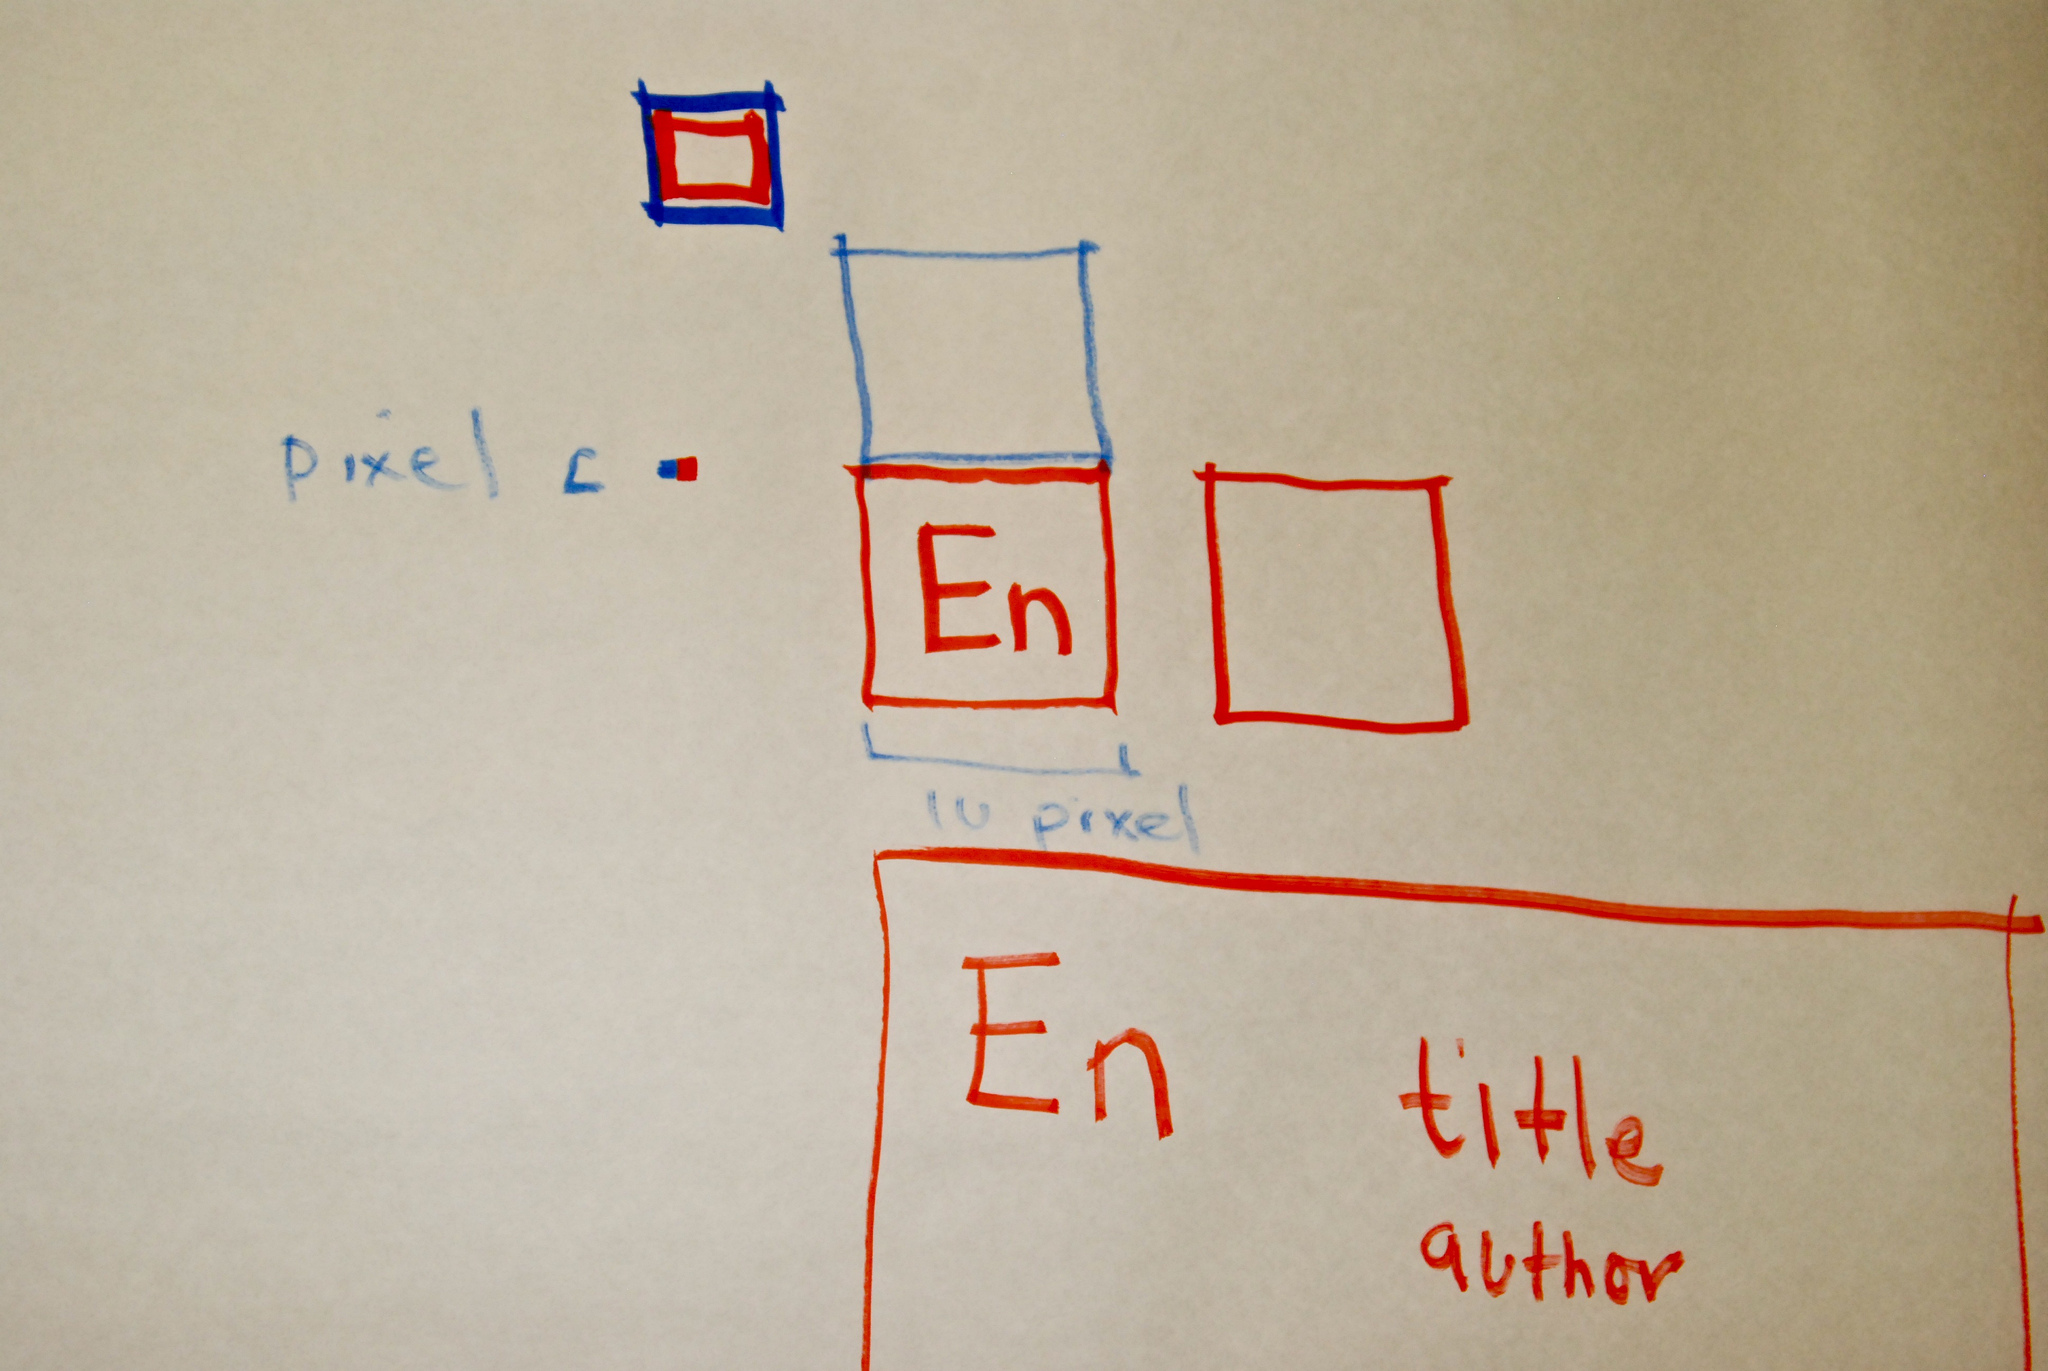 pixel
En
10 pixel
En
title
author